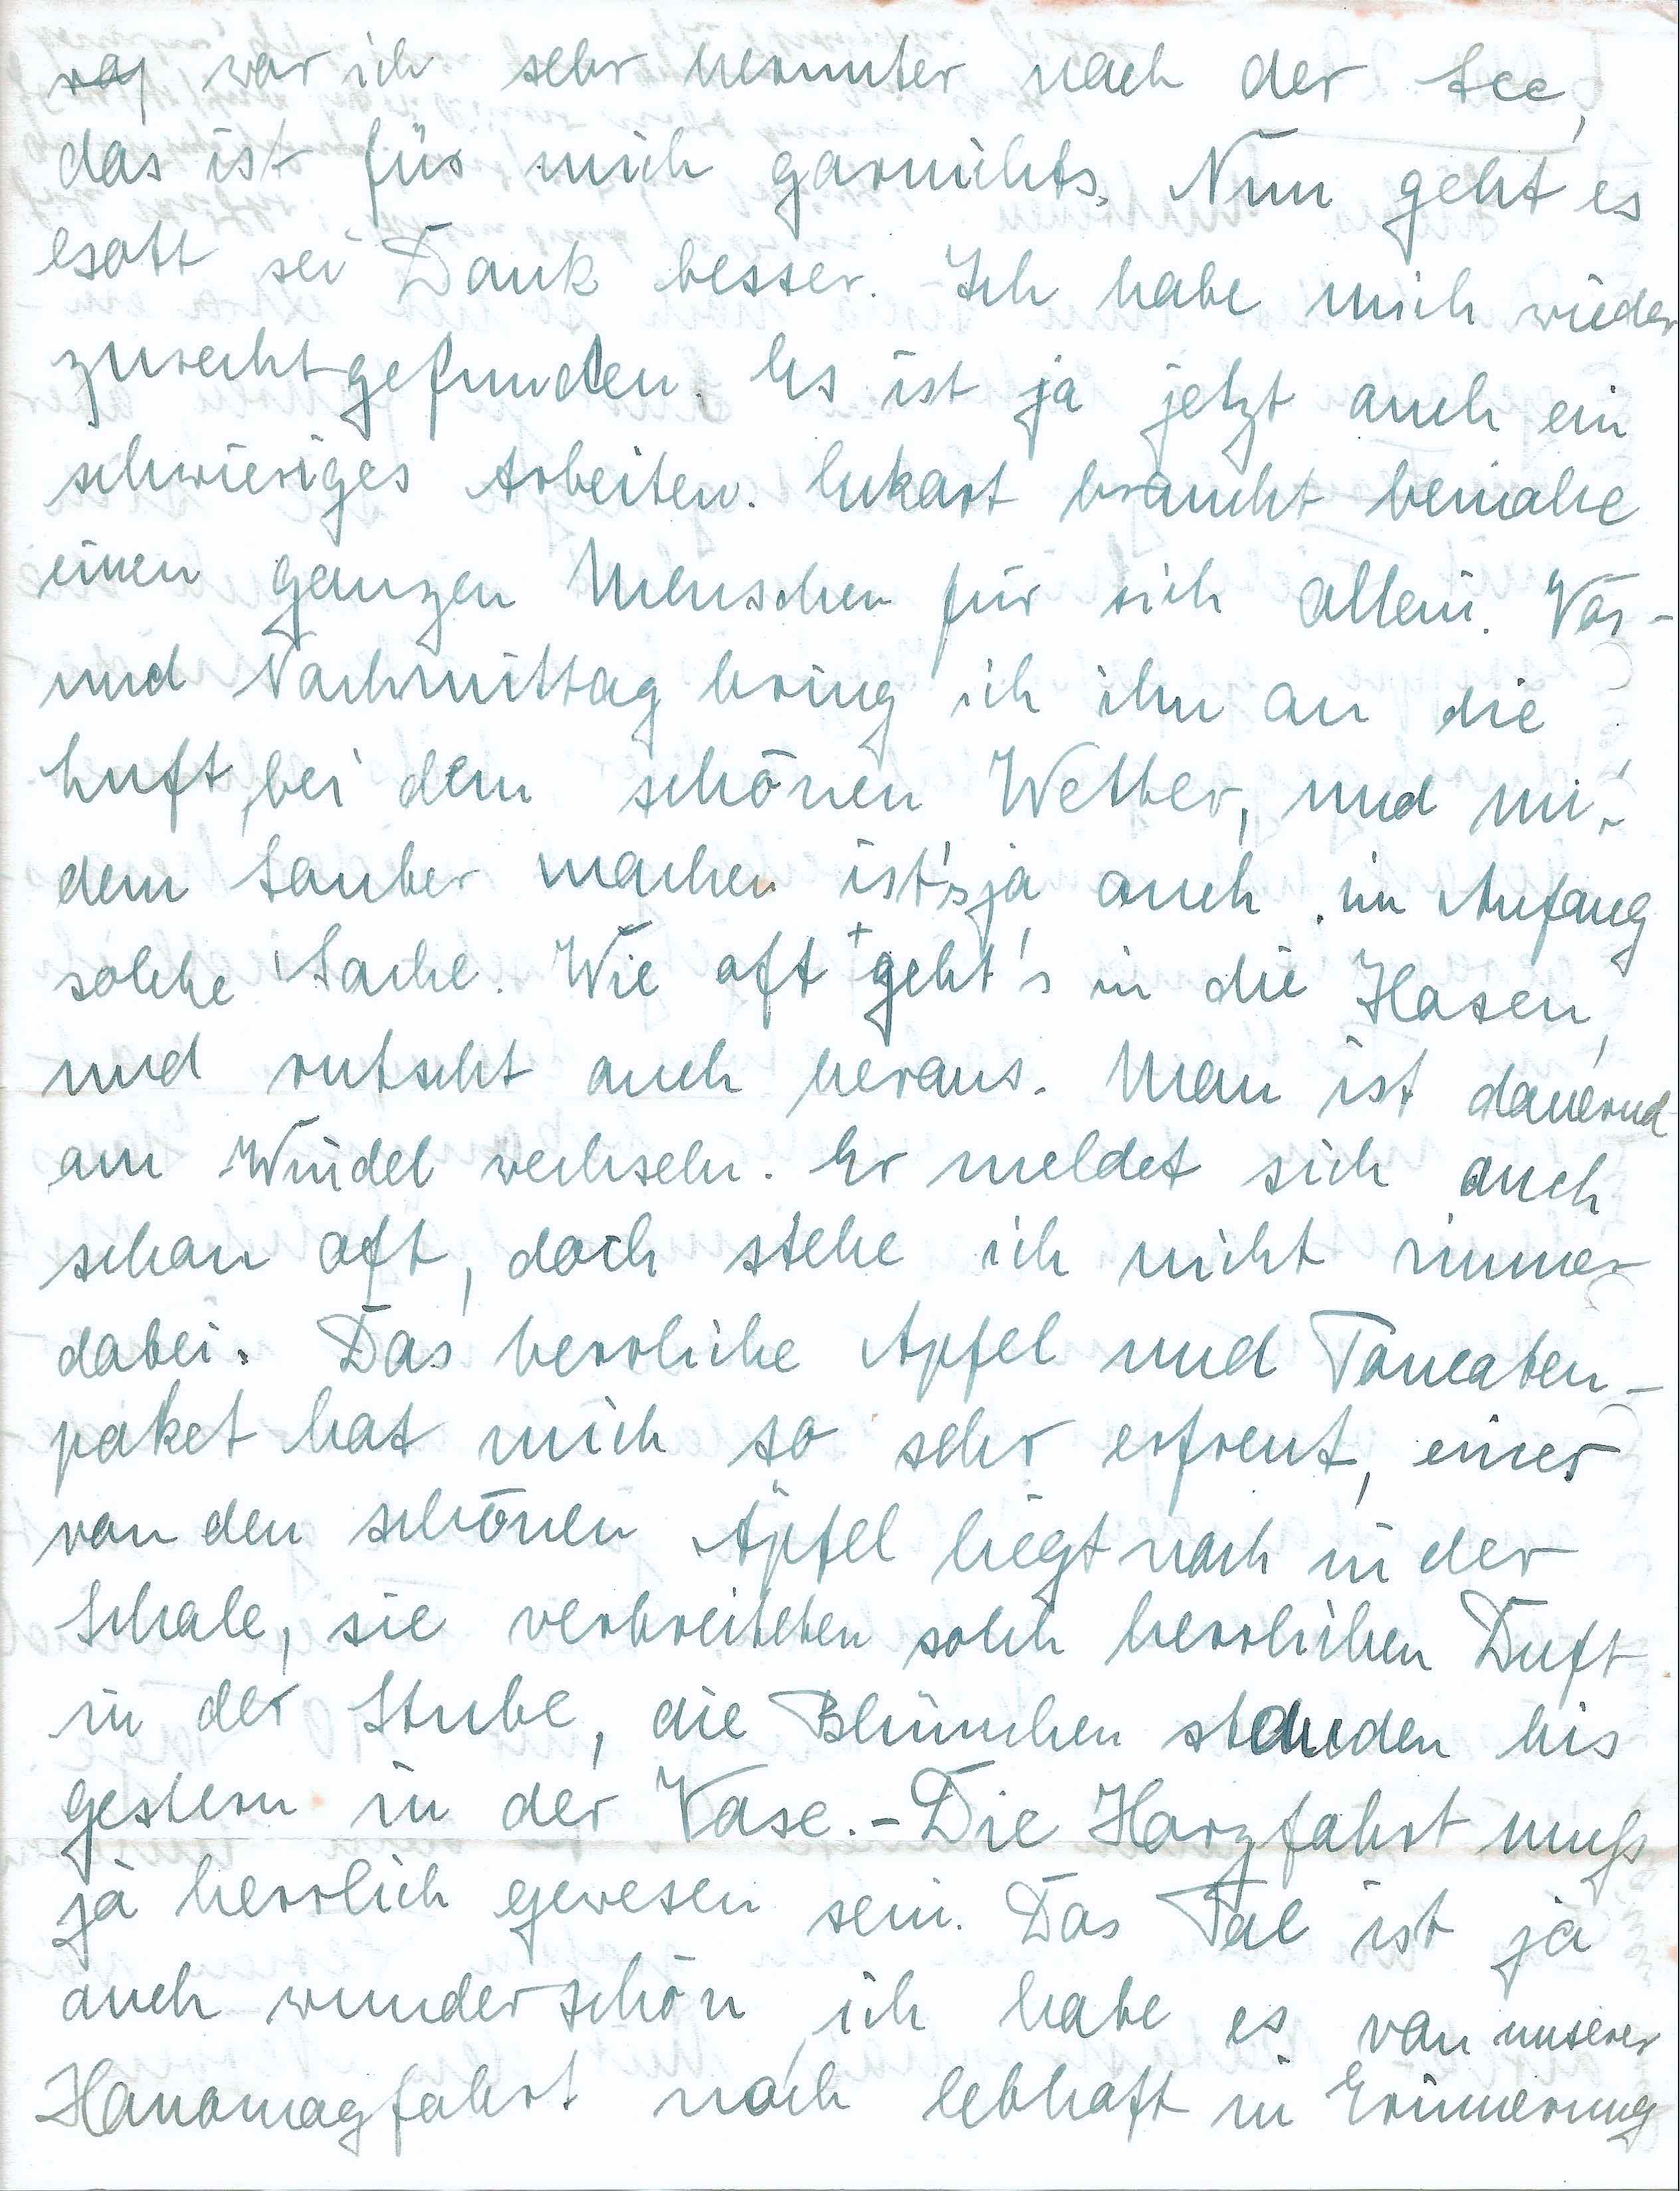 war ich sehr herunter nach der See,
das ist für mich garnichts. Nun geht es
Gott sei Dank besser. Ich habe mich wieder
zurechtgefunden. Es ist ja jetzt auch ein
schwieriges Arbeiten. Eckart braucht beinahe
einen ganzen Menschen für sich allein. Vor-
und Nachmittag bring ich ihn an die
Luft, bei dem schönen Wetter, und mit
dem Sauber machen ist's ja auch im Anfang
solche Sache. Wie oft geht's in die Hosen,
und rutscht auch heraus. Man ist dauernd
am Windel wechseln. Er meldet sich auch
schon oft, doch stehe ich nicht immer
dabei. Das herrliche Apfel und Tomaten-
paket hat mich so sehr erfreut, einer
von den schönen Äpfel liegt noch in der
Schale, sie verbreiteten solch herrlichen Duft
in der Stube, die Blümchen standen bis
gestern in der Vase. - Die Harzfahrt muß
ja herrlich gewesen sein. Das Tal ist ja
auch wunderschön, ich habe es von unserer
Hanomagfahrt noch lebhaft in Erinnerung